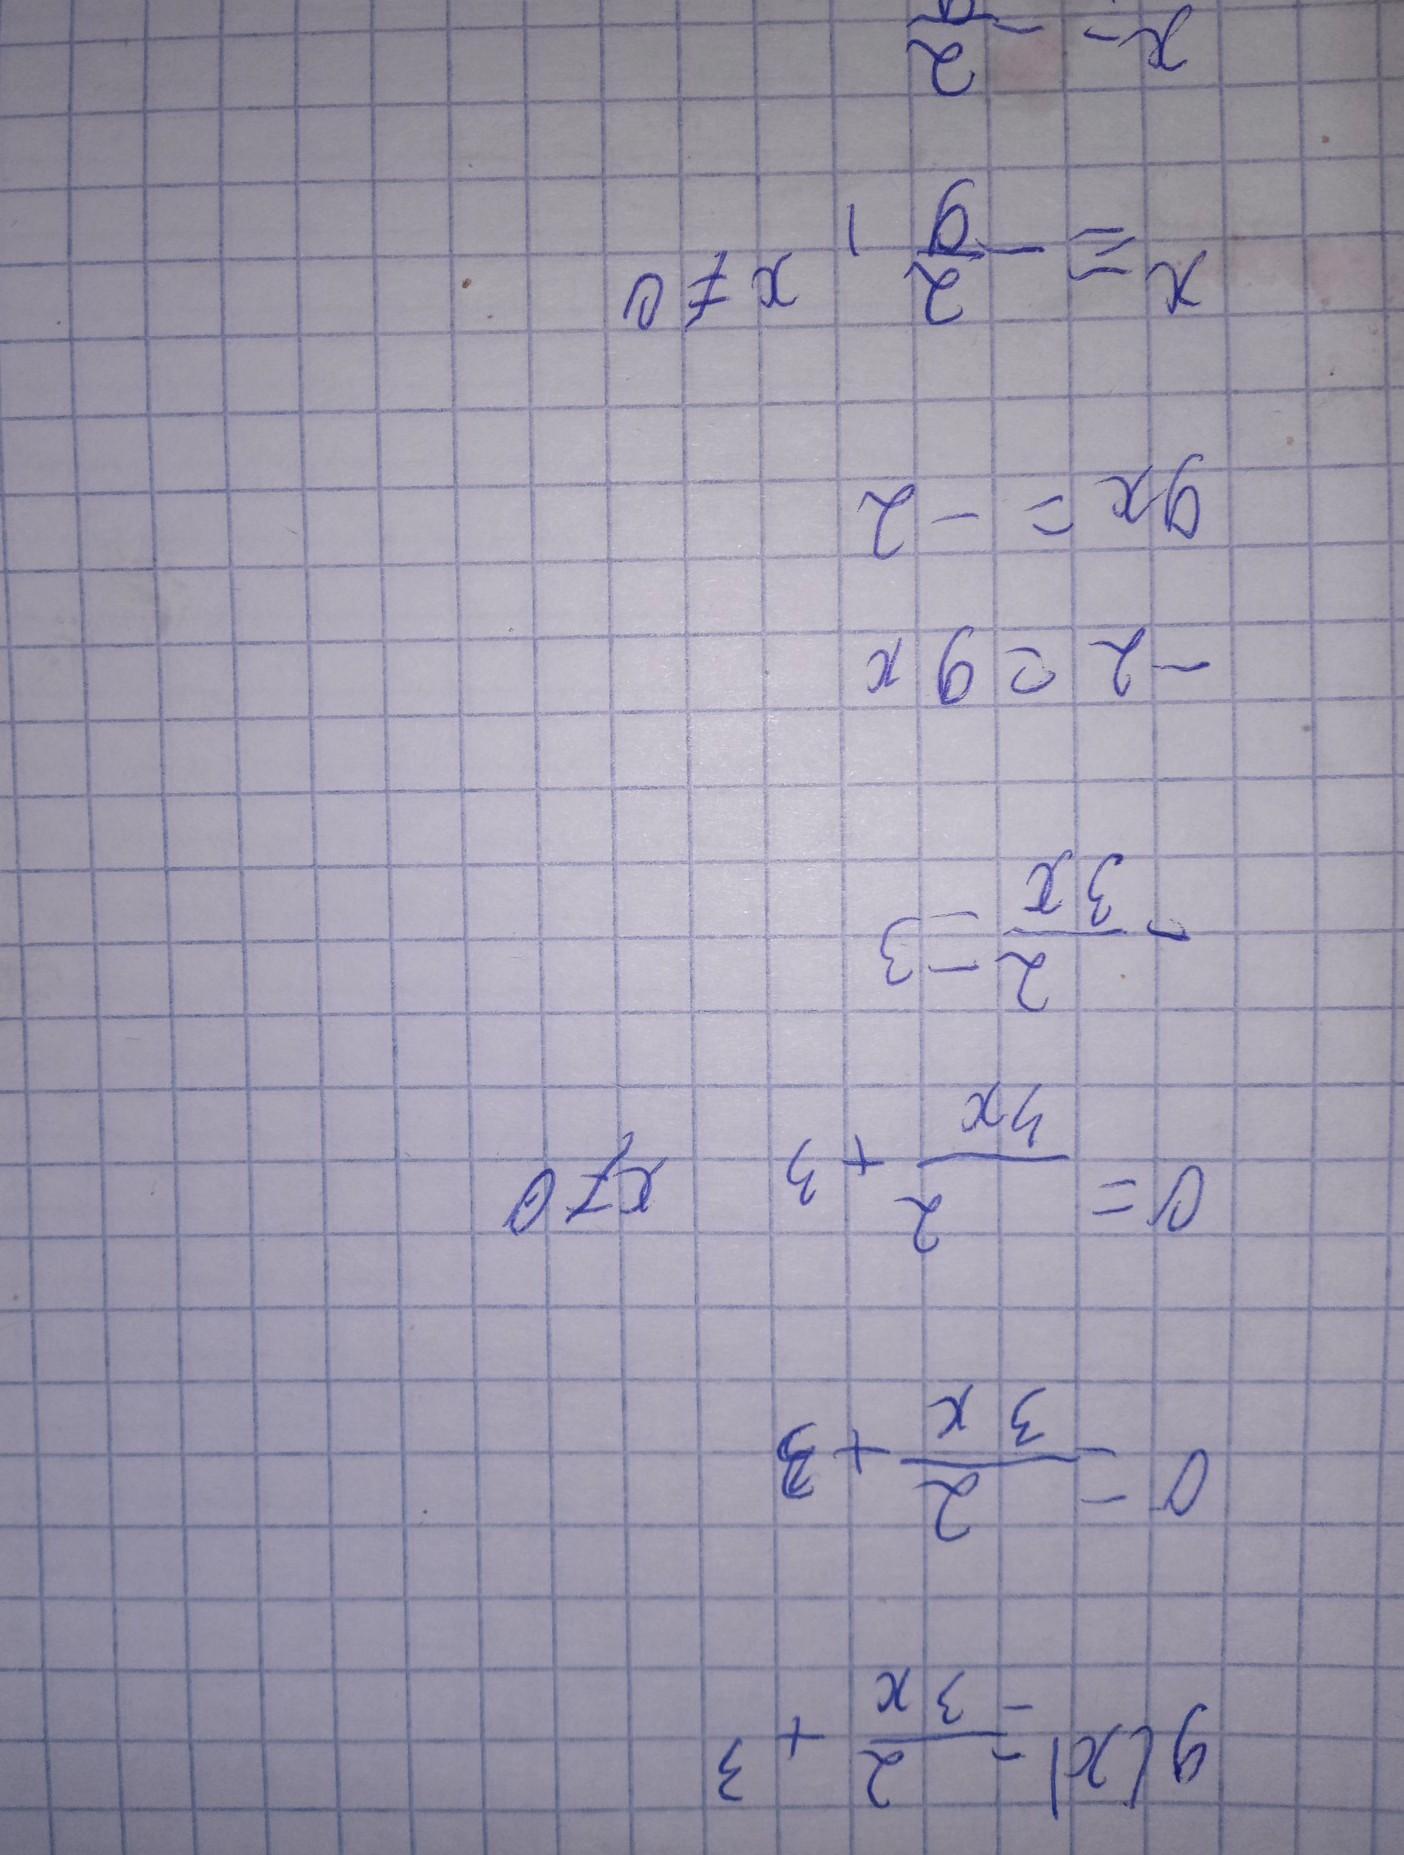 g(x) = 2/3x + 3
0 = 2/3x + 3
0 = 2/3x + 3 x ≠ 0
- 2/3x = 3
-2 = 9x
9x = -2
x = - 2/9 , x ≠ 0
x = - 2/9